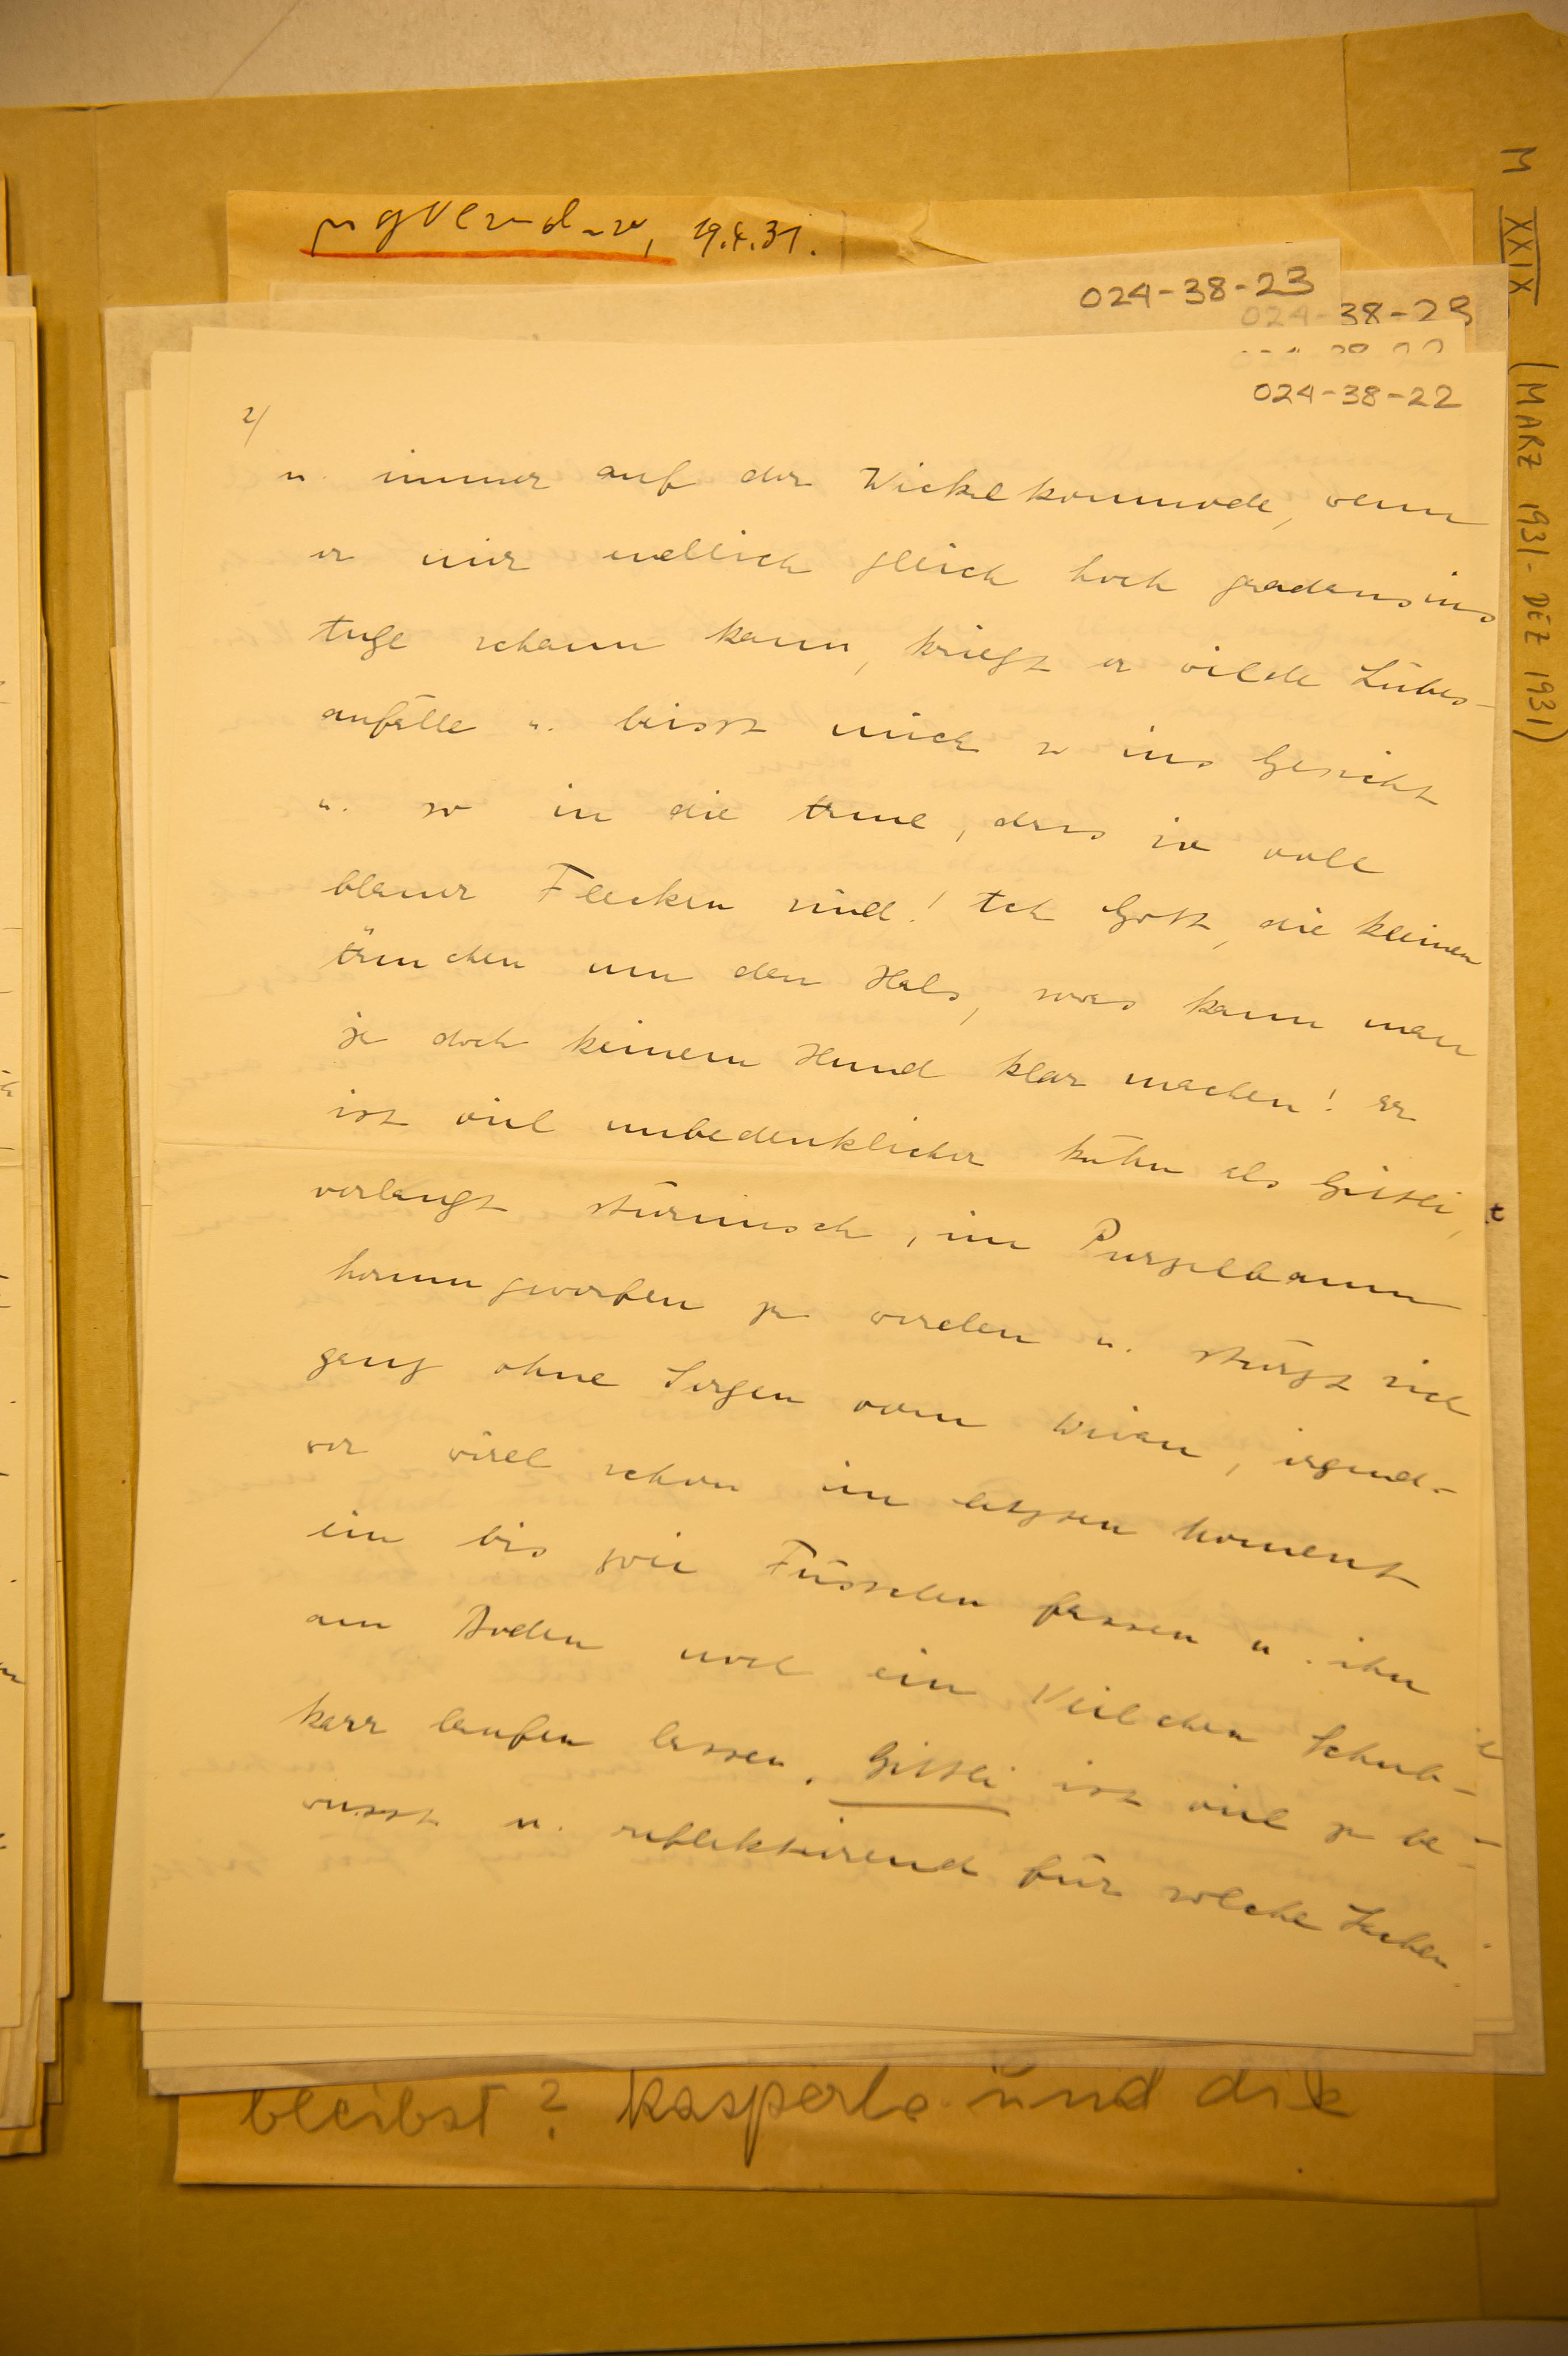 19.4.31.
024-38-23
024-38-23
024-38-22
M XXIX (MARZ 1931 - DEZ 1931)
2/
u. immer auf der Wickelkommode, wenn
er mir endlich gleich hoch gradaus ins
Auge schaun kann, kriegt er wilde Liebes-
anfälle u. beisst mich so ins Gesicht
u. so in die Arme, dass sie voll
blauer Flecken sind! Ach Gott, die kleinen
Ärmchen um den Hals, sowas kann man
ja doch keinem Hund klar machen! Er
ist viel unbedenklicher kühn als Gittli,
verlangt stürmisch, im Purzelbaum
herumgeworfen zu werden u. stürzt sich
ganz ohne Sorgen vom Diwan, irgend-
wer wird schon im letzten Moment
ein bis zwei Füsschen fassen u. ihn
am Boden noch ein Weilchen Schub-
karr laufen lassen. Gittli ist viel zu be-
wusst u. reflektierend für solche Sachen.
bleibst? Kasperle und die